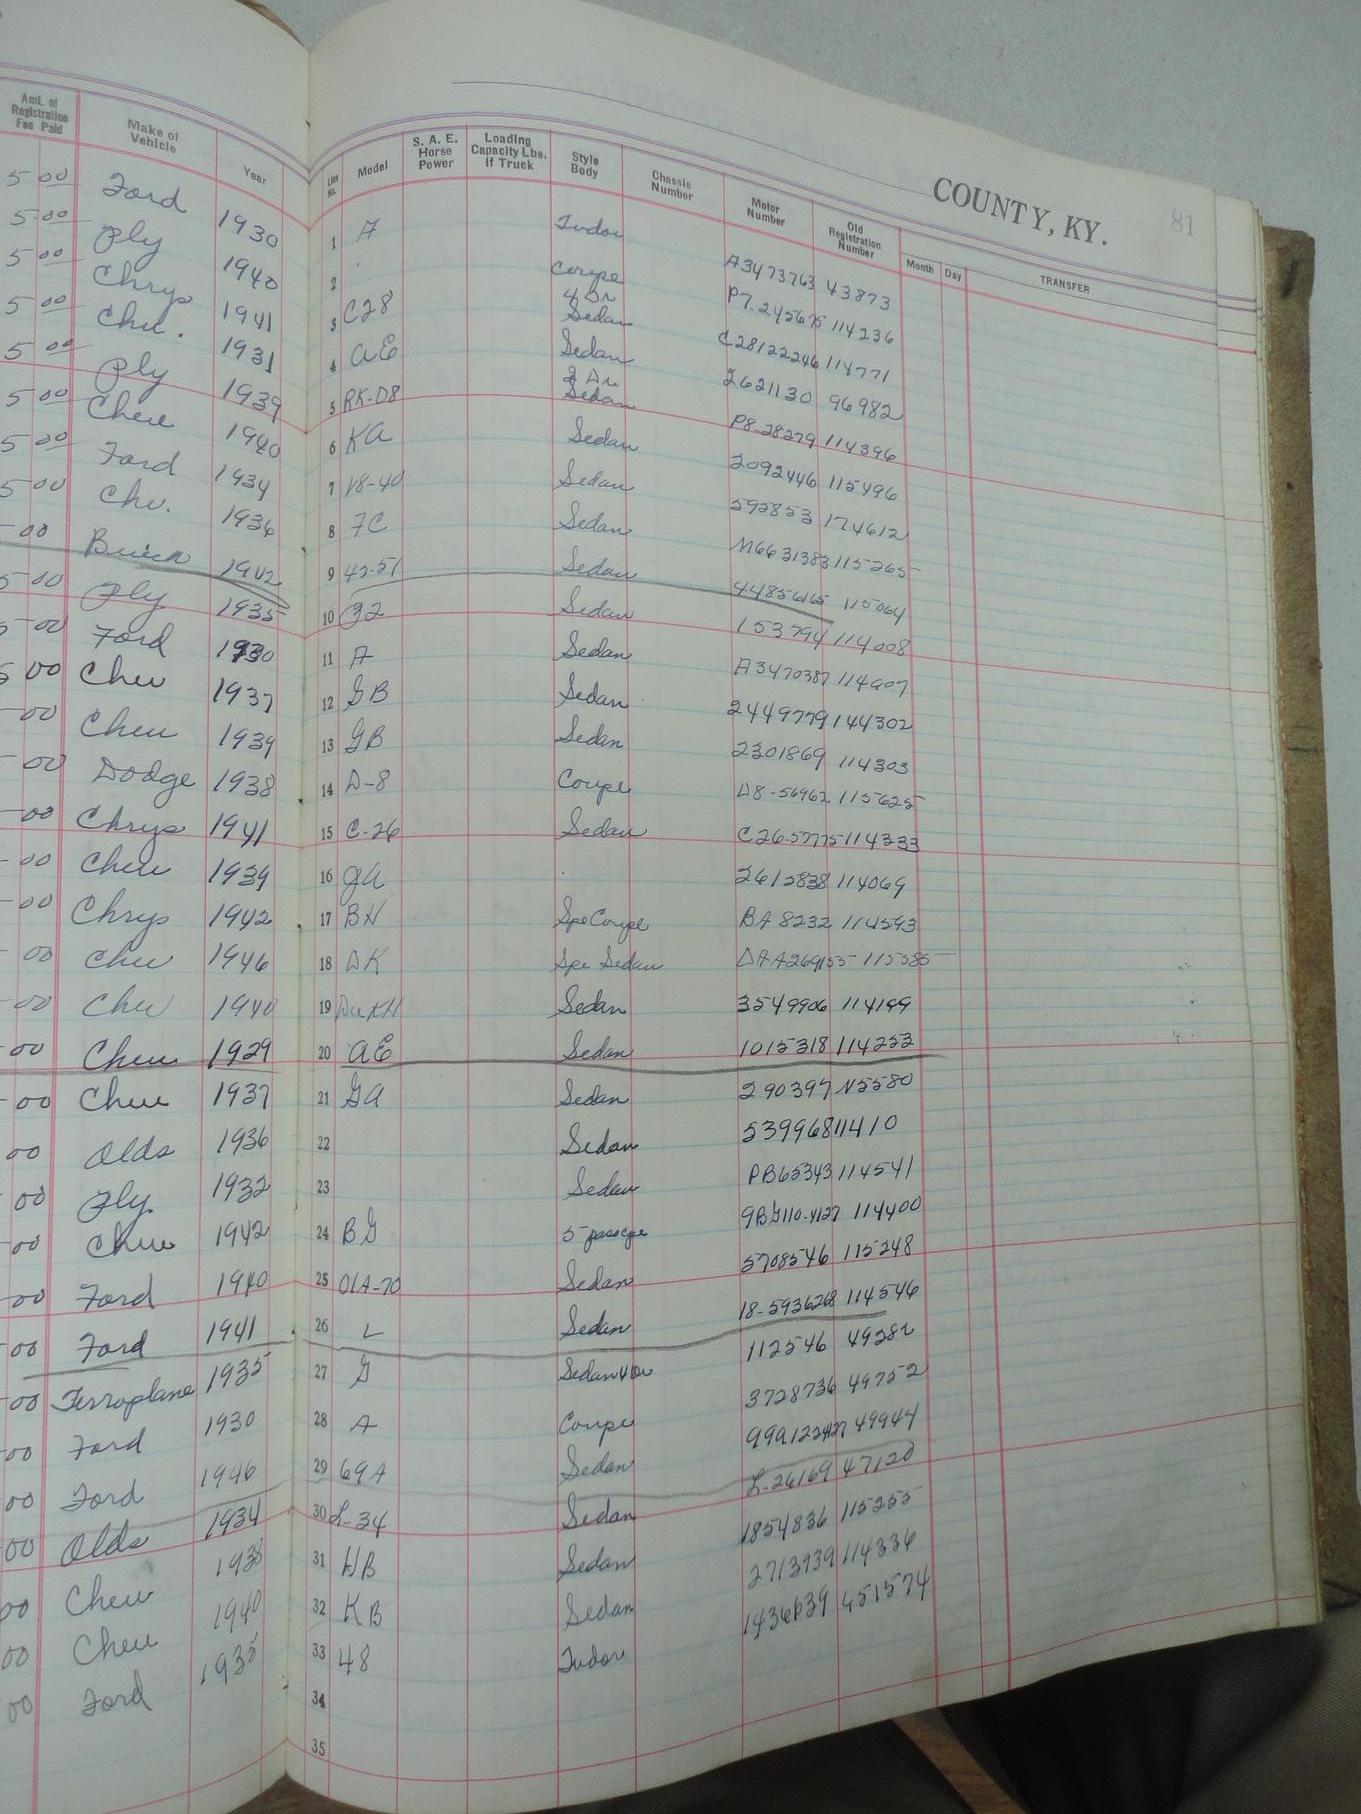 COUNTY, KY. 81
Amt. of Registration Fee Paid Make of Vehicle Year Line No. Model S. A. E. Horse Power Loading Capacity Lbs. If Truck Style Body Chassis Number Motor Number Old Registration Number Month Day TRANSFER
5 00 Ford 1930 1 A Tudor A3473763 43873
5 00 Ply 1940 2 Coupe P7.245675 114236
5 00 Chrys 1941 3 C28 4 Dr Sedan C28122246 114771
5 00 Che. 1931 4 AE Sedan 2621130 96982
5 00 Ply 1939 5 RK-D8 2 Dr Sedan P8-28279 114396
5 00 Chev 1940 6 KA Sedan 2092446 115496
5 00 Ford 1934 7 18-40 Sedan 592853 174612
5 00 Chv. 1936 8 FC Sedan M6631383 115265
00 Buick 1942 9 42-51 Sedan 44856165 115064
5 00 Ply 1935 10 32 Sedan 153794 114008
5 00 Ford 1930 11 A Sedan A3470387 114907
5 00 Chev 1937 12 GB Sedan 2449779 144302
00 Chev 1939 13 GB Sedan 2301869 114303
00 Dodge 1938 14 D-8 Coupe D8-56962 115625
00 Chrys 1941 15 C-26 Sedan C26-57775 114333
00 Chev 1939 16 JA 2612838 114069
00 Chrys 1942 17 BH Spe Coupe BA 8232 114593
00 Chev 1946 18 DK Spe Sedan DAA269155 115585
00 Chev 1940 19 Sedan 3549906 114199
00 Chev 1929 20 AE Sedan 1015318 114253
00 Chev 1937 21 GA Sedan 290397 N5580
00 Olds 1936 22 Sedan 5399681 1410
00 Ply. 1932 23 Sedan PB65343 114541
00 Chev 1942 24 BG 5 pass cpe 9BG110-4127 114400
00 Ford 1940 25 01A-70 Sedan 5708546 115248
00 Ford 1941 26 L Sedan 18-5936268 114546
00 Terroplane 1935 27 G Sedan 4 Dr 112546 49282
00 Ford 1930 28 A Coupe 3728736 49752
00 Ford 1946 29 69A Sedan 99A1224427 49944
00 Olds 1934 30 L-34 Sedan L-26169 47120
00 Chev 1938 31 HB Sedan 1854836 115255
00 Chev 1940 32 KB Sedan 2713939 114336
00 Ford 1935 33 48 Tudor 1436639 451574
34
35